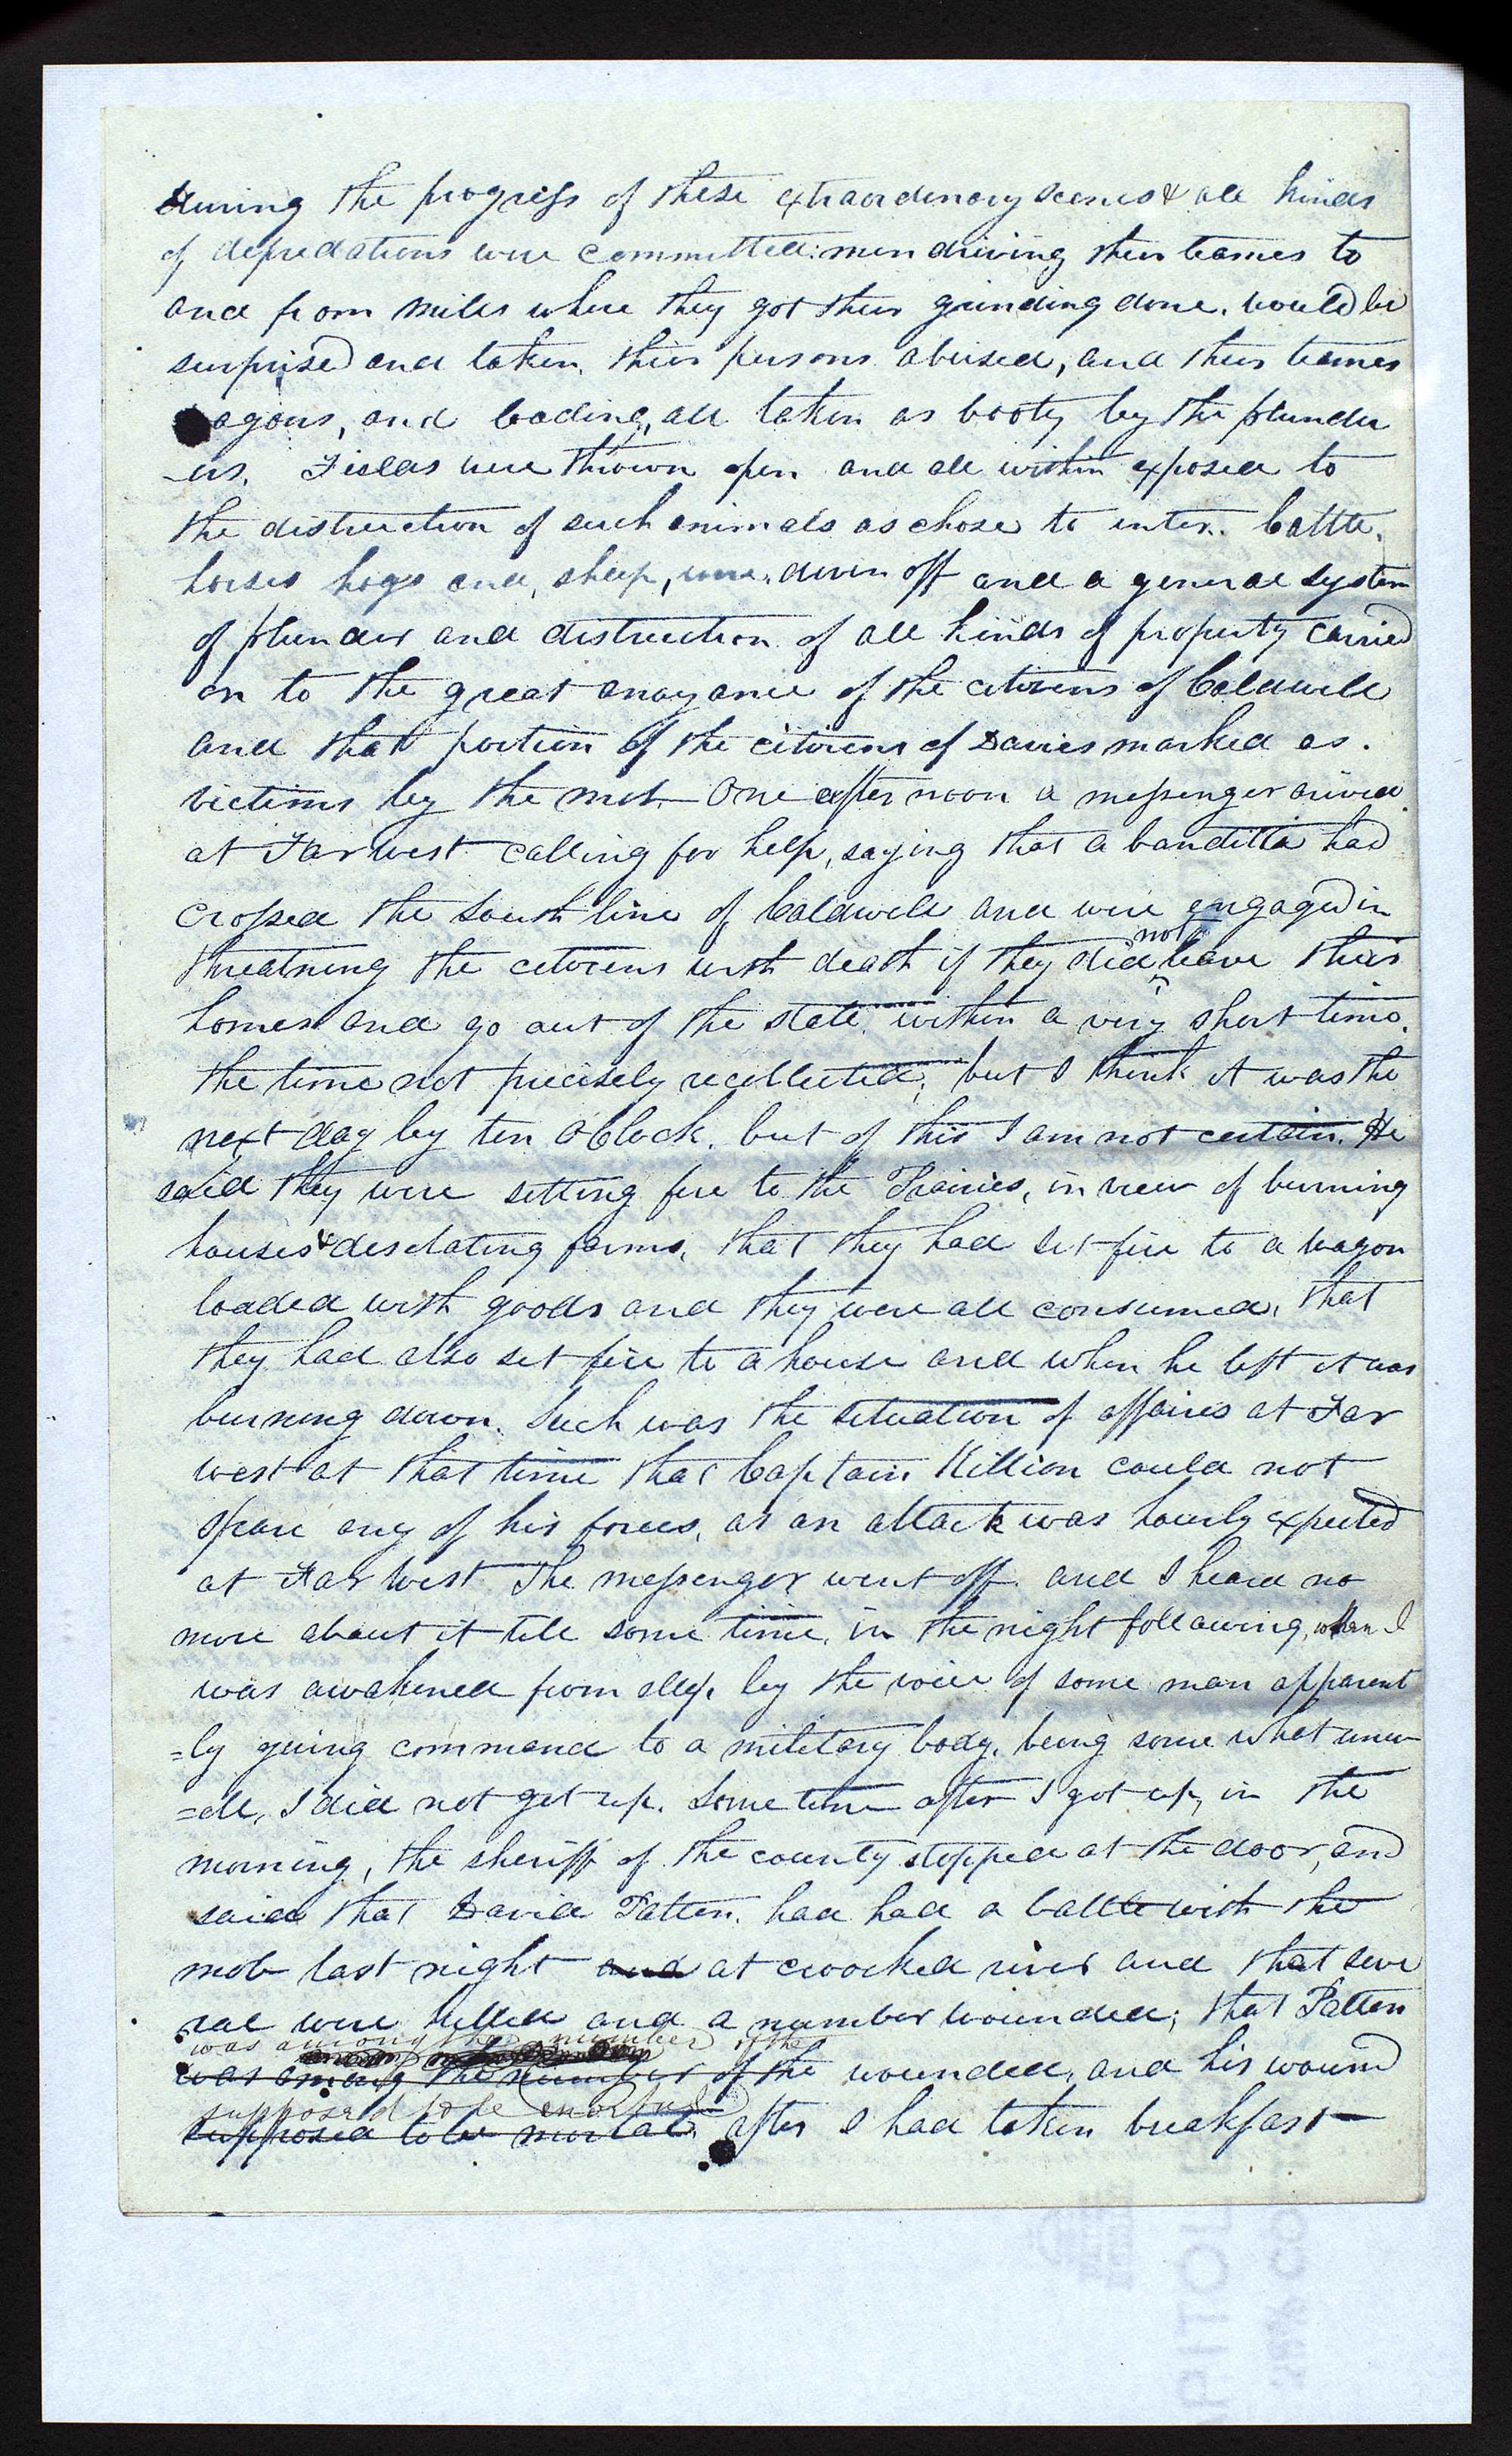 During the progress of these extraordenory scenes & all kinds
of depredations were committed: men driving their teames to
and from miles where they got their grinding done. would be
surprised and taken, their persons abused, and their teames
agons, and loading, all taken as booty by the plunder
-ers. Fields were thrown open and all within exposed to
the distruction of such animals as chose to enter. Cattle,
horses hogs and, sheep, were, driven off and a general system
of plunder and distruction of all kinds of property carried
on to the great anoyance of the citizens of Caldwell
and that portion of the citizens of Davies marked as.
victims by the mob. One after noon a messenger arived
at Far west calling for help, saying that a banditta had
crossed the South line of Caldwell and were engaged in
not
threatning the citizens with death if they did leave their
homes and go out of the state, within a very short time.
the time not precisely recollected; but I think it was the
next day by ten oClock. but of this I am not certain. He
said they were setting fire to the Prairies, in view of burning
houses & desolating farms, that they had set fire to a wagon
loaded with goods and they were all consumed, that
they had also set fire to a house and when he left it was
burning down. Such was the situation of affairs at Far
west at that time that Captain Killion could not
spare any of his forces, as an attack was hourly expected
at Far West The messenger went off. and I heard no
more about it till some time, in the night following, when I
was awakened from sleep, by the voice of some man apparent
=ly giving command to a military body, being some what unw
=ell, I did not get up. Some time after I got up, in the
morning, the sheriff of the county stopped at the door, and
said that David Patten. had had a battle with the
mob last night and at crooked river and that seve
ral were killed and a number wounded; that Patten
was among the number of the
was among the number of the wounded, and his wound
supposed to be mortal
supposed to be mortal. after I had taken breakfast